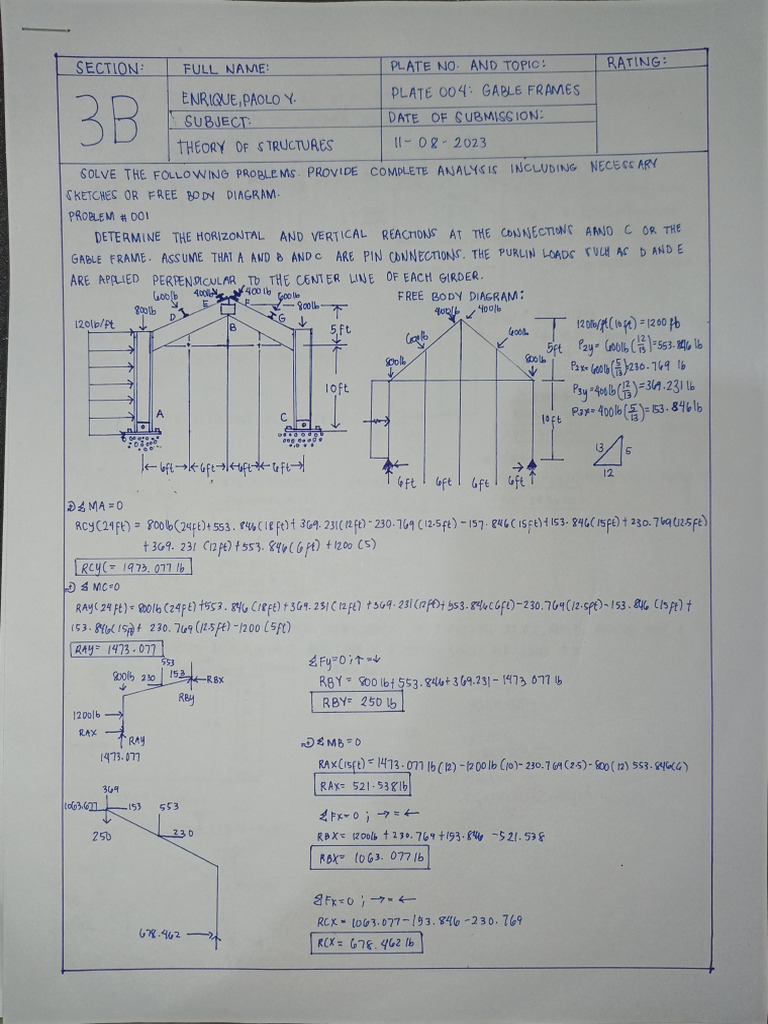 SECTION:
FULL NAME:
PLATE NO. AND TOPIC:
RATING:
3B
ENRIQUE, PAOLO Y.
PLATE 004: GABLE FRAMES
SUBJECT:
DATE OF SUBMISSION:
THEORY OF STRUCTURES
11-08-2023
SOLVE THE FOLLOWING PROBLEMS. PROVIDE COMPLETE ANALYSIS INCLUDING NECESSARY
SKETCHES OR FREE BODY DIAGRAM.
PROBLEM # 001
DETERMINE THE HORIZONTAL AND VERTICAL REACTIONS AT THE CONNECTIONS AAND C OR THE
GABLE FRAME. ASSUME THAT A AND B AND C ARE PIN CONNECTIONS. THE PURLIN LOADS SUCH AS D AND E
ARE APPLIED PERPENDICULAR TO THE CENTER LINE OF EACH GIRDER.
120lb/ft
800lb
600lb
400lb
400lb
600lb
800lb
D
E
F
G
B
A
C
5ft
10ft
6ft
6ft
6ft
6ft
FREE BODY DIAGRAM:
400lb
400lb
600lb
600lb
800lb
800lb
5ft
10ft
6ft
6ft
6ft
6ft
120lb/ft(10ft) = 1200 lb
P2y = 600lb(12/13) = 553.846 lb
P2x = 600lb(5/13) = 230.769 lb
P3y = 400lb(12/13) = 369.231 lb
P3x = 400lb(5/13) = 153.846 lb
13
5
12
ΣMA=0
RCY(24ft) = 800lb(24ft)+553.846(18ft)+369.231(12ft)-230.769(12.5ft)-157.846(15ft)+153.846(15ft)+230.769(12.5ft)
+369.231(12ft)+553.846(6ft)+1200(5)
RCY(= 1973.077 lb
ΣMC=0
RAY(24ft) = 800lb(24ft)+553.846(18ft)+369.231(12ft)+369.231(12ft)+553.846(6ft)-230.769(12.5ft)-153.846(15ft)+
153.846(15ft)+ 230.769(12.5ft)-1200(5ft)
RAY= 1473.077
553
800lb
230
153
RBX
RBy
1200lb
RAX
RAY
1473.077
ΣFy=0;↑=↓
RBY = 800lb+553.846+369.231-1473.077lb
RBY= 250 lb
ΣMB=0
RAX(15ft)=1473.077lb(12)-1200lb(10)-230.769(2.5)-800(12) 553.846(6)
RAX= 521.538lb
369
1063.077
153
553
250
230
678.462
ΣFx=0 ; →=←
RBX= 1200lb + 230.769+153.846 -521.538
RBX= 1063.077lb
ΣFx=0 ; →=←
RCX = 1063.077-153.846-230.769
RCX = 678.462 lb